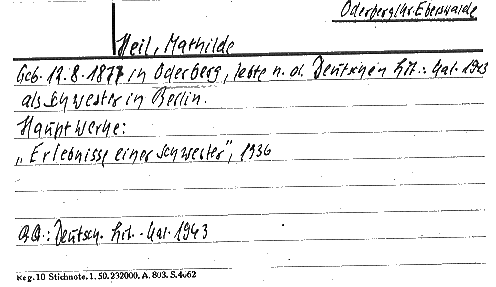 Oderberg/Kr. Eberswalde
Heil, Mathilde
Geb. 12.8.1877 in Oderberg, lebte n. d. Deutschen Lit.-Kal. 1943
als Schwester in Berlin.
Hauptwerke:
„Erlebnisse einer Schwester", 1936
Deutsch. Lit.-Kal. 1943
Reg. 10 Stichnote. 1. 50. 232000. A. 803. S. 4062